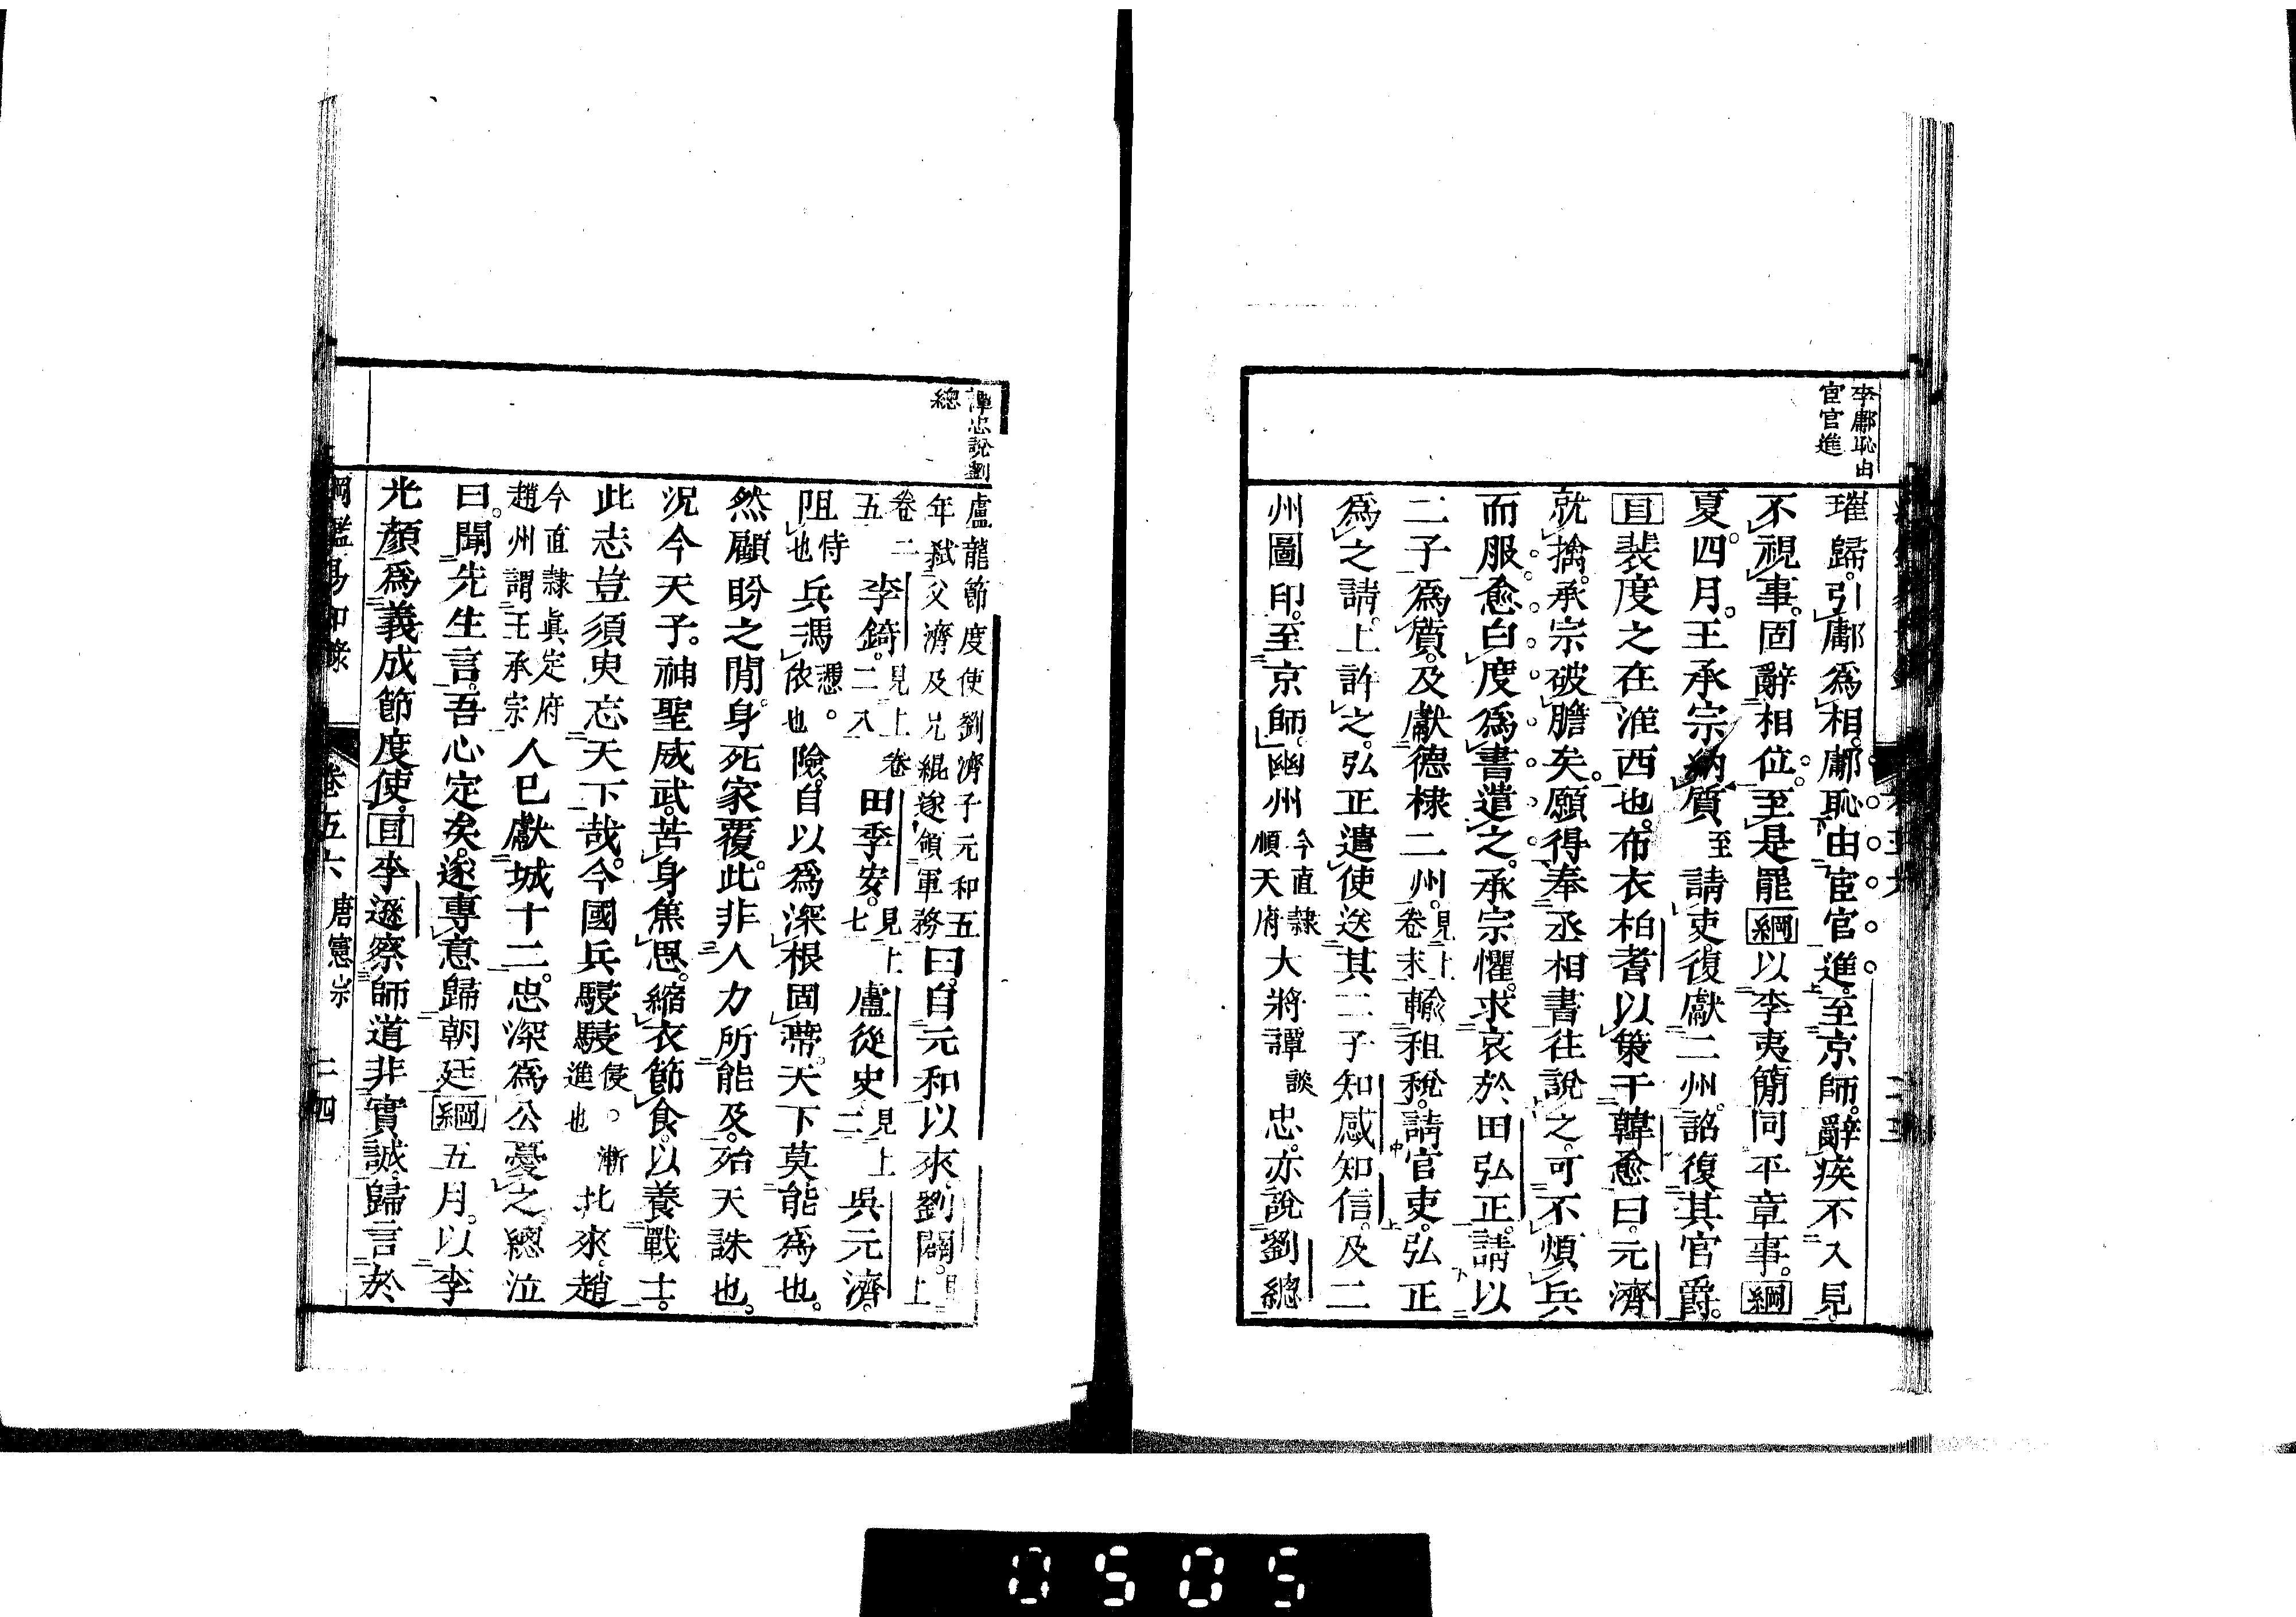 李鄘恥由
宦官進
璀歸。引鄘爲相。鄘恥由宦官進。至京師。辭疾不入見。
不視事。固辭相位。至是罷綱以李夷簡同平章事。綱
夏。四月。王承宗納質至請吏。復獻二州。詔復其官爵。
目裴度之在淮西也。布衣柏耆以策干韓愈曰。元濟
就擒。承宗破膽矣。願得奉丞相書往說之。可不煩兵
而服。愈白度。爲書遣之。承宗懼。求哀於田弘正。請以
二子爲質。及獻德棣二州。見上卷末輸租稅。請官吏。弘正
爲之請。上許之。弘正遣使送其二子知感知信。及二
州圖印。至京師。幽州今直隸順天府大將譚談忠。亦說劉總
譚忠說劉
總
盧龍節度使劉濟子元和五年弑父濟及兄緄遂領軍務曰。自元和以來。劉闢。上
卷二五李錡。見上卷二八田季安。見上七盧從史見上二吳元濟。
阻恃也兵馮憑。依也險。自以爲深根固蔕。天下莫能爲也。
然顧盼之閒。身死家覆。此非人力所能及。殆天誅也。
況今天子。神聖威武。苦身焦思。縮衣節食。以養戰士。
此志豈須臾忘天下哉。今國兵駸駸侵。漸進也北來。趙
今直隸眞定府趙州謂王承宗人已獻城十二。忠深爲公憂之。總泣
曰。聞先生言。吾心定矣。遂專意歸朝廷綱五月。以李
光顏爲義成節度使。目李遜察師道非實誠。歸言於
綱鑑易知錄 卷五六 唐憲宗 二四
0505